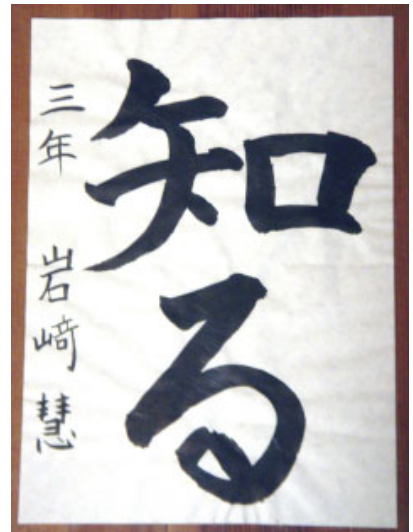 知る
三年 岩﨑 慧